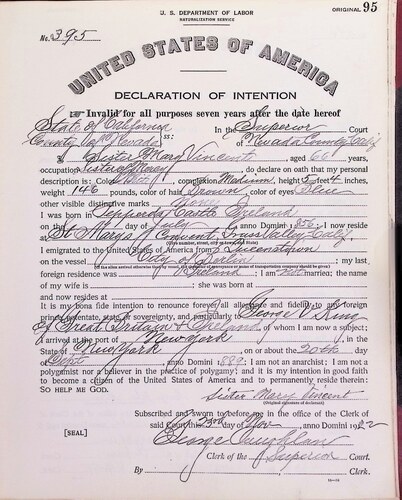 U. S. DEPARTMENT OF LABOR
NATURALIZATION SERVICE
ORIGINAL 95
No. 395
UNITED STATES OF AMERICA
DECLARATION OF INTENTION
Invalid for all purposes seven years after the date hereof
State of California
In the Superior Court
County of Nevada ss: of Nevada County Calif
I, Sister Mary Vincent, aged 66 years,
occupation Sister of Mercy, do declare on oath that my personal
description is: Color White, complexion Medium, height 5 feet inches,
weight 146 pounds, color of hair Brown, color of eyes Blue
other visible distinctive marks None
I was born in Ireland
on the day of July, anno Domini 1856; I now reside
at St Mary's Convent, Grass Valley Calif.
I emigrated to the United States of America from Queenstown
on the vessel City of Berlin; my last
foreign residence was Ireland; I am not married; the name
of my wife is; she was born at
and now resides at
It is my bona fide intention to renounce forever all allegiance and fidelity to any foreign
prince, potentate, state, or sovereignty, and particularly to George V King
of Great Britain & Ireland, of whom I am now a subject;
I arrived at the port of New York, in the
State of New York, on or about the 20th day
Sept, anno Domini 1889; I am not an anarchist; I am not a
polygamist nor a believer in the practice of polygamy; and it is my intention in good faith
to become a citizen of the United States of America and to permanently reside therein:
SO HELP ME GOD.
Sister Mary Vincent
Subscribed and sworn to before me in the office of the Clerk of
said Court this 23rd day of Nov, anno Domini 1922
[SEAL]
George
Clerk of the Superior Court.
By , Clerk.